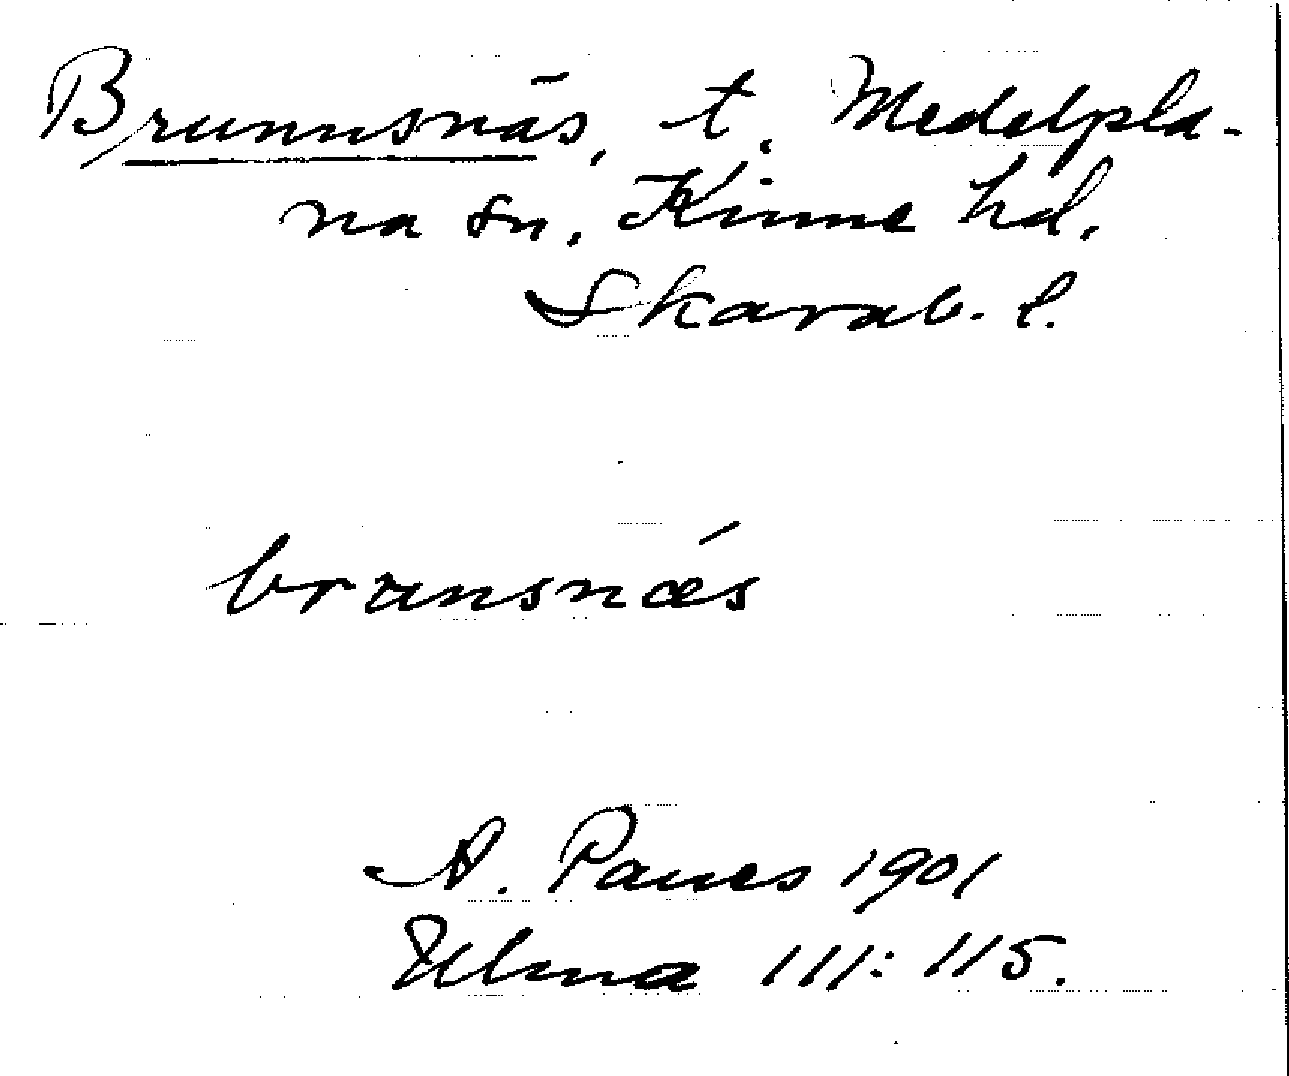 Brunnsnäs, t. Medelpla-
na sn, Kinne hd.
Skarab. l.
brunsnæ´s
A. Paues 1901
Ulma 111: 115.